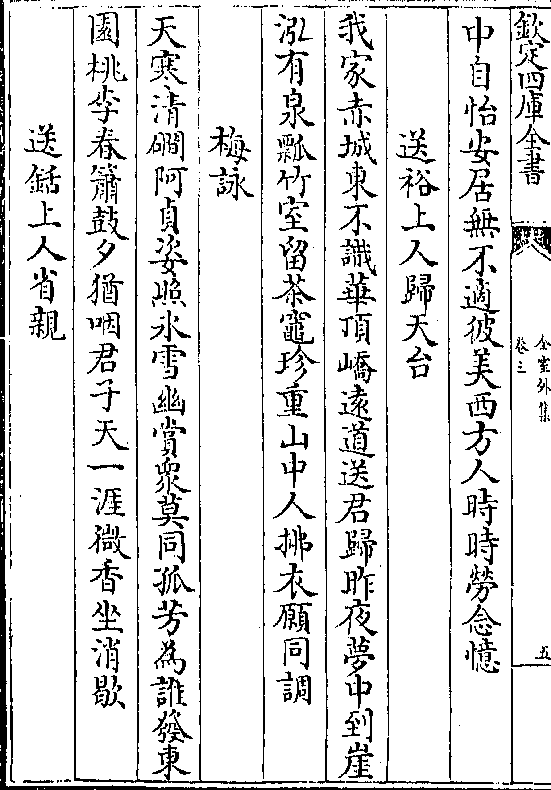 欽定四庫全書
全室外集
卷三
五
中自怡安居無不適彼美西方人時時勞念憶
送裕上人歸天台
我家赤城東不識華頂嶠遠道送君歸昨夜夢中到崖
泓有泉瓢竹室留茶竈珍重山中人拂衣願同調
梅詠
天寒清磵阿貞姿照氷雪幽賞衆莫同孤芳為誰發東
園桃李春簫鼓夕猶咽君子天一涯微香坐消歇
送銛上人省親